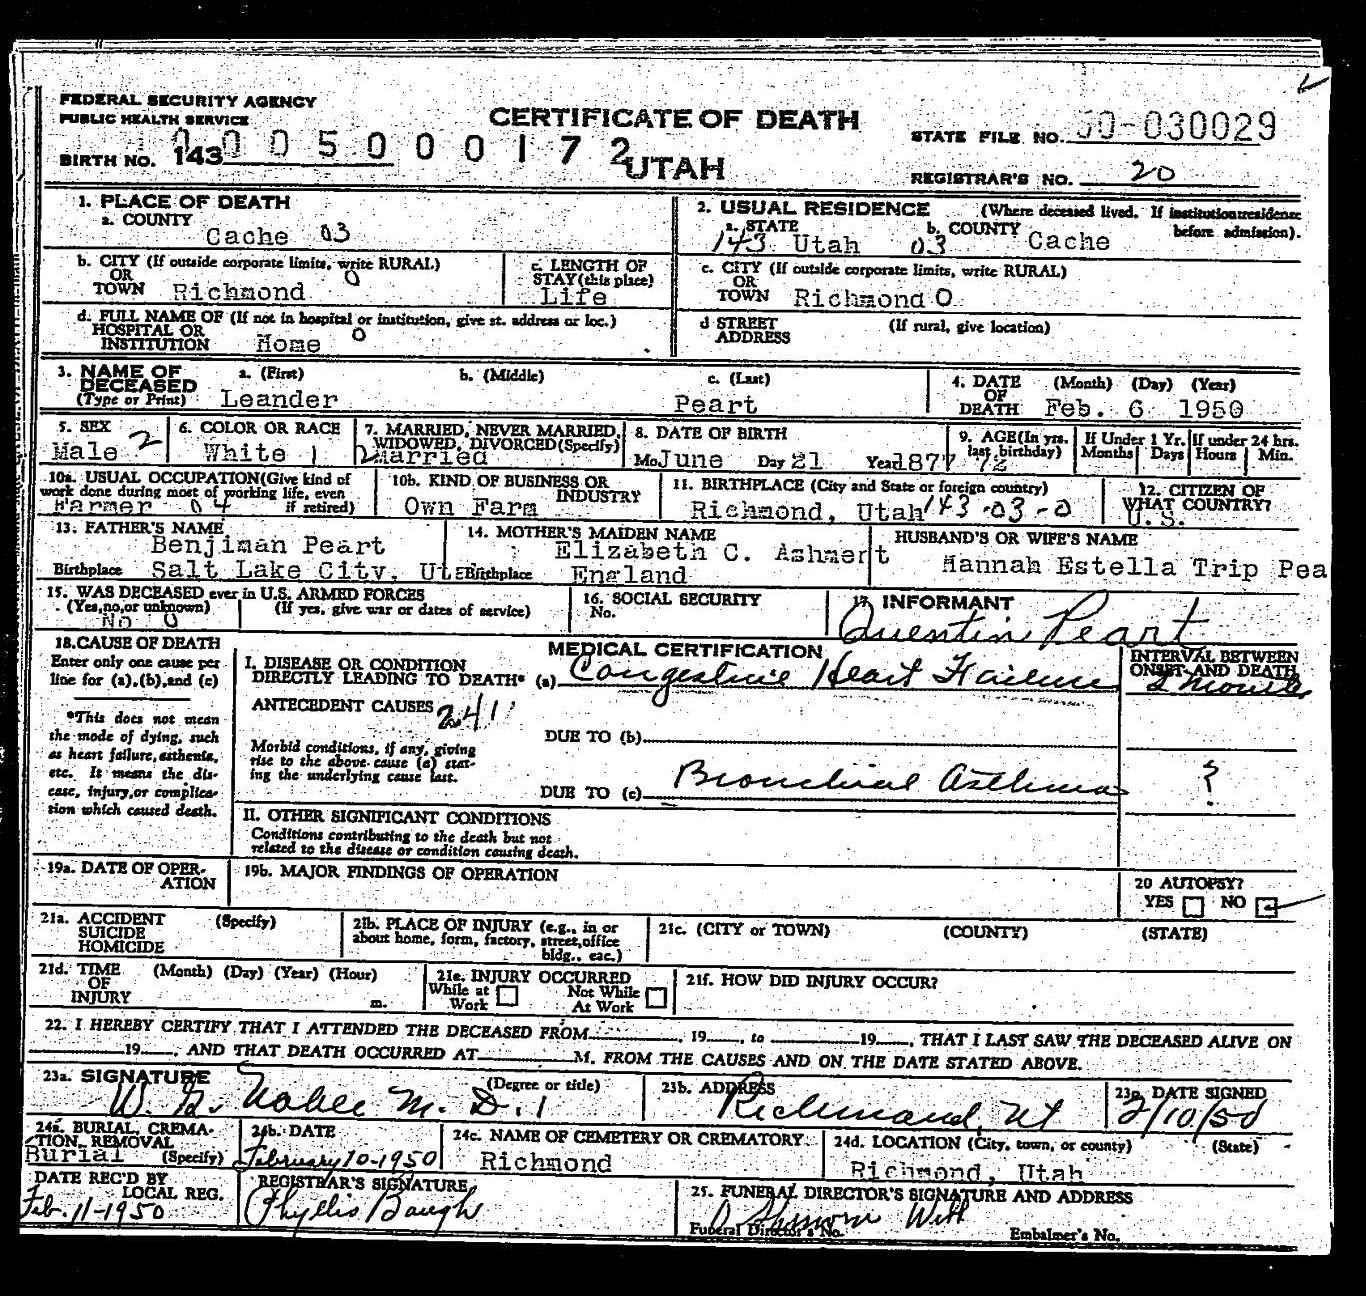 FEDERAL SECURITY AGENCY
PUBLIC HEALTH SERVICE
CERTIFICATE OF DEATH
UTAH
BIRTH NO. 143
0005000172
STATE FILE NO. 50-030029
REGISTRAR'S NO. 20
1. PLACE OF DEATH
a. COUNTY
Cache 03
2. USUAL RESIDENCE (Where deceased lived. If institution: residence before admission).
a. STATE 143 Utah
b. COUNTY 03 Cache
b. CITY (If outside corporate limits, write RURAL)
OR
TOWN Richmond 0
c. LENGTH OF
STAY (this place)
Life
c. CITY (If outside corporate limits, write RURAL)
OR
TOWN Richmond 0
d. FULL NAME OF (If not in hospital or institution, give st. address or loc.)
HOSPITAL OR
INSTITUTION Home 0
d STREET (If rural, give location)
ADDRESS
3. NAME OF
DECEASED
(Type or Print)
a. (First)
Leander
b. (Middle)
c. (Last)
Peart
4. DATE (Month) (Day) (Year)
OF
DEATH Feb. 6 1950
5. SEX
Male 2
6. COLOR OR RACE
White 1
7. MARRIED, NEVER MARRIED,
WIDOWED, DIVORCED (Specify)
2 Married
8. DATE OF BIRTH
Mo. June Day 21 Year 1877
9. AGE (In yrs.
last birthday)
72
If Under 1 Yr.
Months Days
If under 24 hrs.
Hours Min.
10a. USUAL OCCUPATION (Give kind of
work done during most of working life, even
if retired)
Farmer 04
10b. KIND OF BUSINESS OR
INDUSTRY
Own Farm
11. BIRTHPLACE (City and State or foreign country)
Richmond, Utah 143-03-0
12. CITIZEN OF
WHAT COUNTRY?
U.S.
13. FATHER'S NAME
Benjiman Peart
Birthplace Salt Lake City, Utah
14. MOTHER'S MAIDEN NAME
Elizabeth C. Ashment
Birthplace England
HUSBAND'S OR WIFE'S NAME
Hannah Estella Trip Pea
15. WAS DECEASED ever in U.S. ARMED FORCES
(Yes, no, or unknown) (If yes, give war or dates of service)
No 0
16. SOCIAL SECURITY
No.
17. INFORMANT
Quentin Peart
18. CAUSE OF DEATH
Enter only one cause per
line for (a), (b), and (c)
*This does not mean
the mode of dying, such
as heart failure, asthenia,
etc. It means the dis-
ease, injury, or complica-
tion which caused death.
MEDICAL CERTIFICATION
I. DISEASE OR CONDITION
DIRECTLY LEADING TO DEATH* (a) Congestive Heart Failure
INTERVAL BETWEEN
ONSET AND DEATH
months
ANTECEDENT CAUSES 241
Morbid conditions, if any, giving
rise to the above cause (a) stat-
ing the underlying cause last.
DUE TO (b)
DUE TO (c) Bronchial Asthma
?
II. OTHER SIGNIFICANT CONDITIONS
Conditions contributing to the death but not
related to the disease or condition causing death.
19a. DATE OF OPER-
ATION
19b. MAJOR FINDINGS OF OPERATION
20 AUTOPSY?
YES NO
21a. ACCIDENT (Specify)
SUICIDE
HOMICIDE
21b. PLACE OF INJURY (e.g., in or
about home, form, factory, street, office
bldg., eac.)
21c. (CITY or TOWN) (COUNTY) (STATE)
21d. TIME (Month) (Day) (Year) (Hour)
OF
INJURY m.
21e. INJURY OCCURRED
While at Work
Not While At Work
21f. HOW DID INJURY OCCUR?
22. I HEREBY CERTIFY THAT I ATTENDED THE DECEASED FROM , 19 , to 19 , THAT I LAST SAW THE DECEASED ALIVE ON
19 , AND THAT DEATH OCCURRED AT M. FROM THE CAUSES AND ON THE DATE STATED ABOVE.
23a. SIGNATURE (Degree or title)
M. D. 1
23b. ADDRESS
Richmond, Ut
23c. DATE SIGNED
2/10/50
24a. BURIAL, CREMA-
TION, REMOVAL
(Specify)
Burial
24b. DATE
February 10-1950
24c. NAME OF CEMETERY OR CREMATORY
Richmond
24d. LOCATION (City, town, or county) (State)
Richmond, Utah
DATE REC'D BY
LOCAL REG.
Feb. 11-1950
REGISTRAR'S SIGNATURE
Phyllis Baugh
25. FUNERAL DIRECTOR'S SIGNATURE AND ADDRESS
Funeral Director's No.
Embalmer's No.